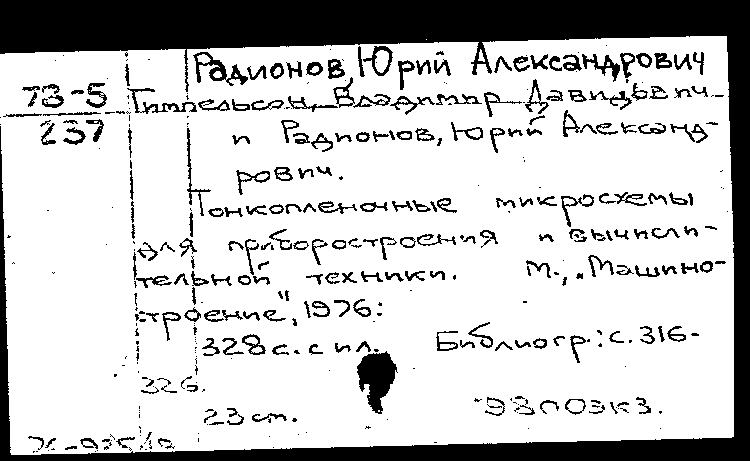 Радионов, Юрий Александрович
73-5 Тимпельсон, Владимир Давидович
237 и Радионов, Юрий Александ-
рович.
Тонкопленочные микросхемы
для приборостроения и вычисли-
тельной техники. М., „Машино-
строение", 1976:
328 с. с ил. Библиогр.: с. 316-
326.
23 см. 9800экз.